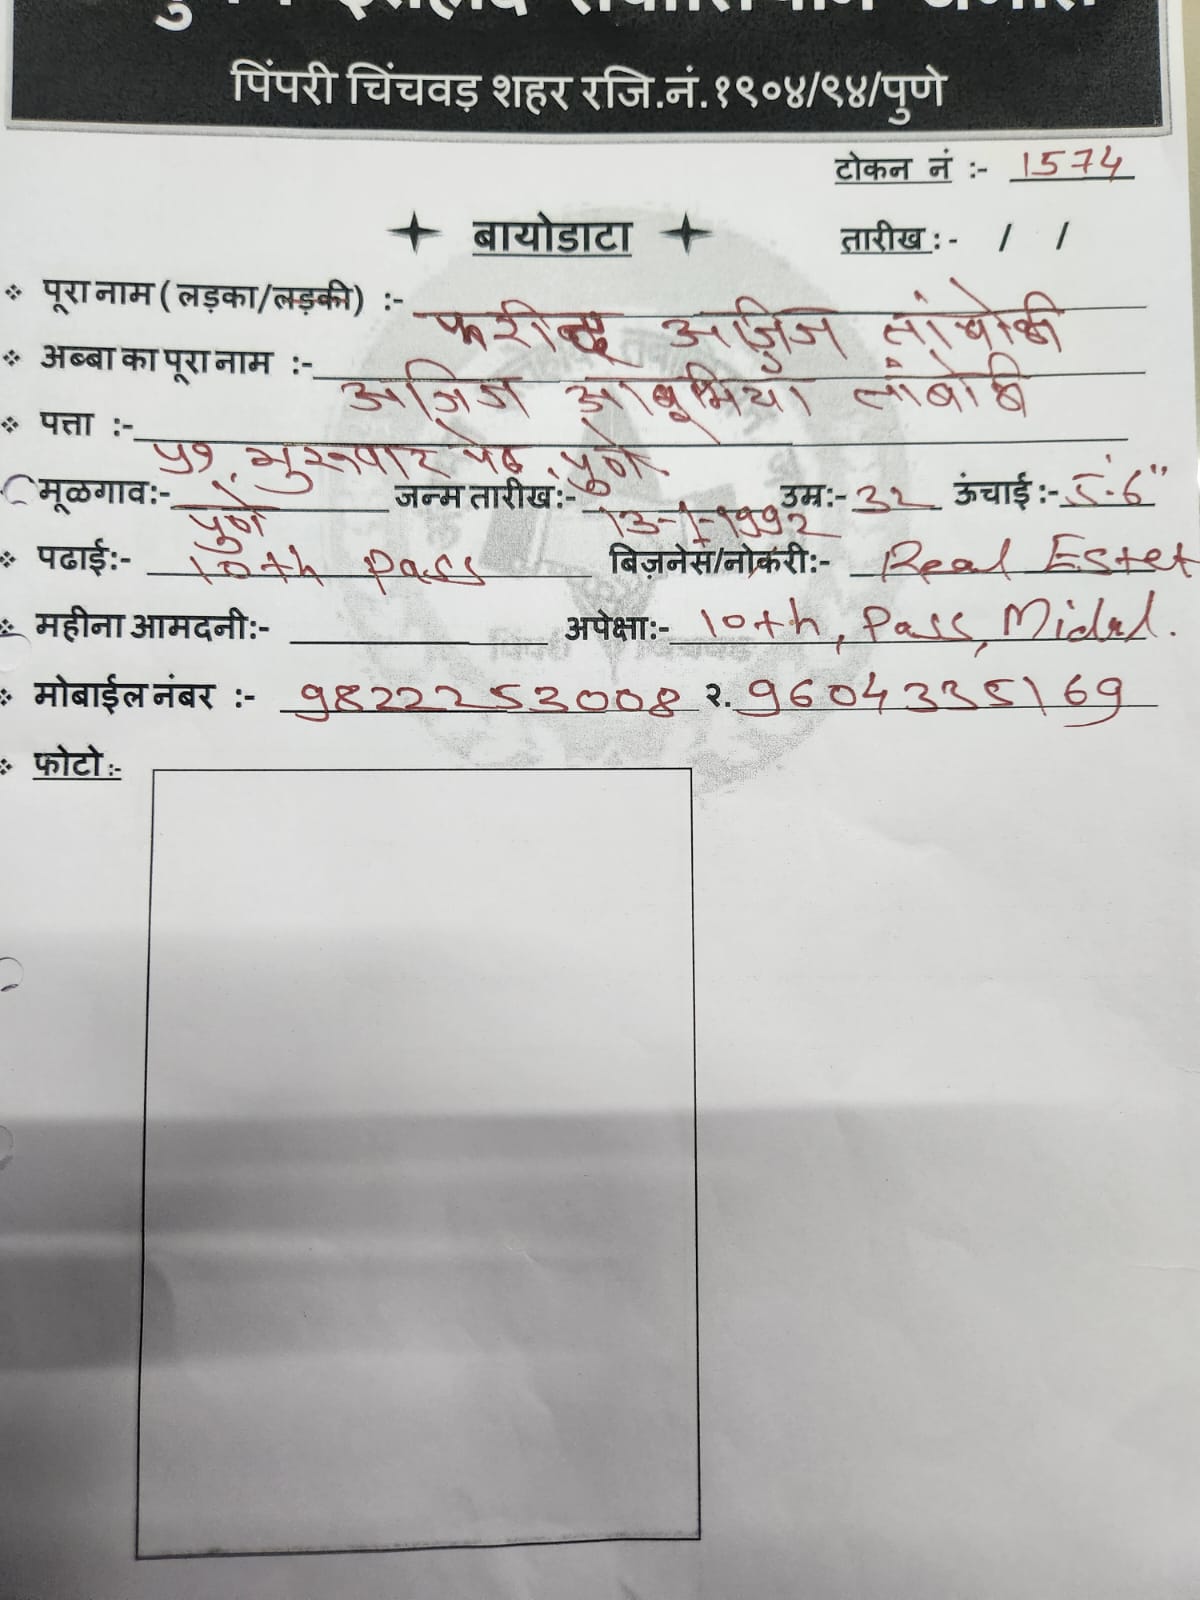 पिंपरी चिंचवड़ शहर रजि.नं.१९०४/९४/पुणे
टोकन नं :- 1574
बायोडाटा
तारीख :- / /
पूरा नाम ( लड़का/लड़की) :- फरीद अज़िज तांबोळी
अब्बा का पूरा नाम :- अजिज आबूमिया तांबोळी
पत्ता :- ५१, गुरुवार पेठ, पुणे
मूळगाव:- पुणे जन्म तारीख:- 13-1-1992 उम्र:- 32 ऊंचाई :- 5.6"
पढाई:- 10th pass बिज़नेस/नोकरी:- Real Estet
महीना आमदनी:- अपेक्षा:- 10th, Pass, Midal.
मोबाईल नंबर :- 9822253008 २. 9604335169
फोटो :-